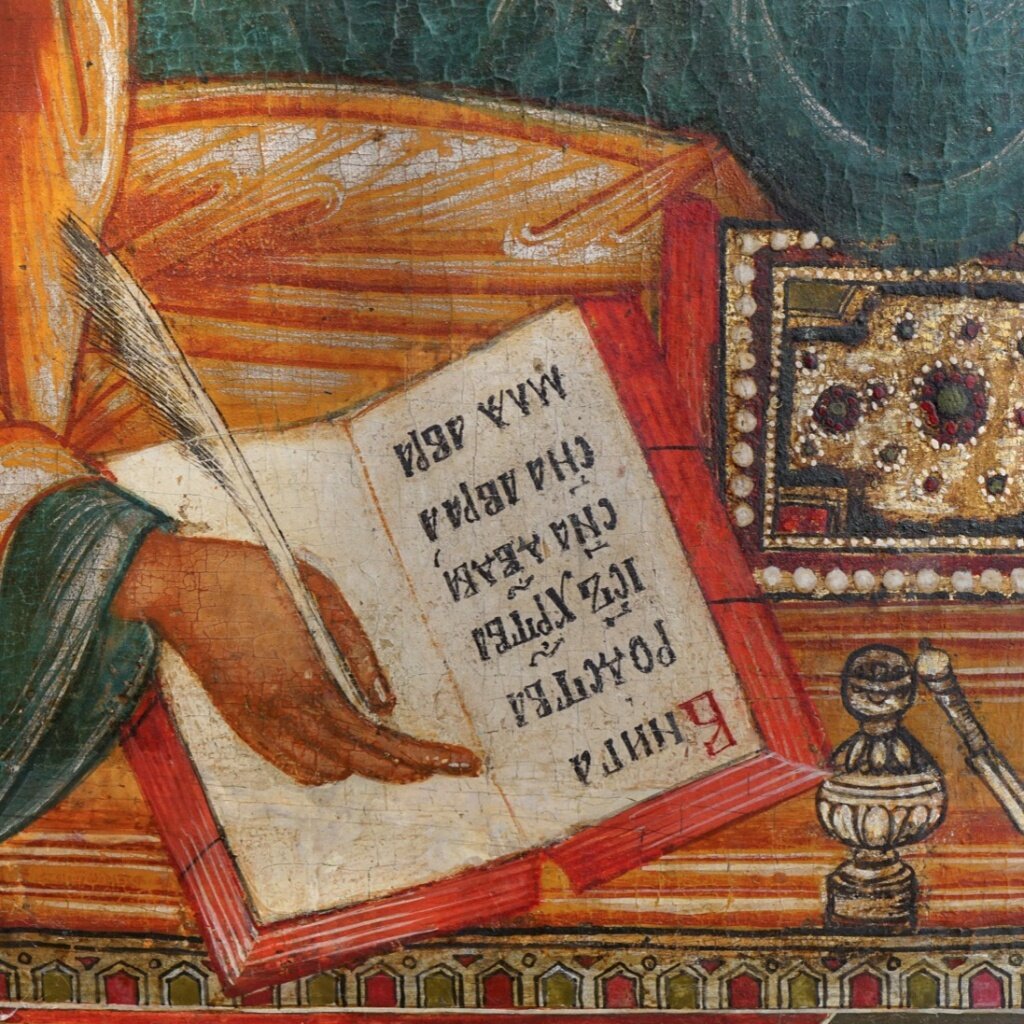 Книга
родства
іс҃ъ хр҃тва
сн҃а дв҃дв,
сн҃а авраа
млѧ авра